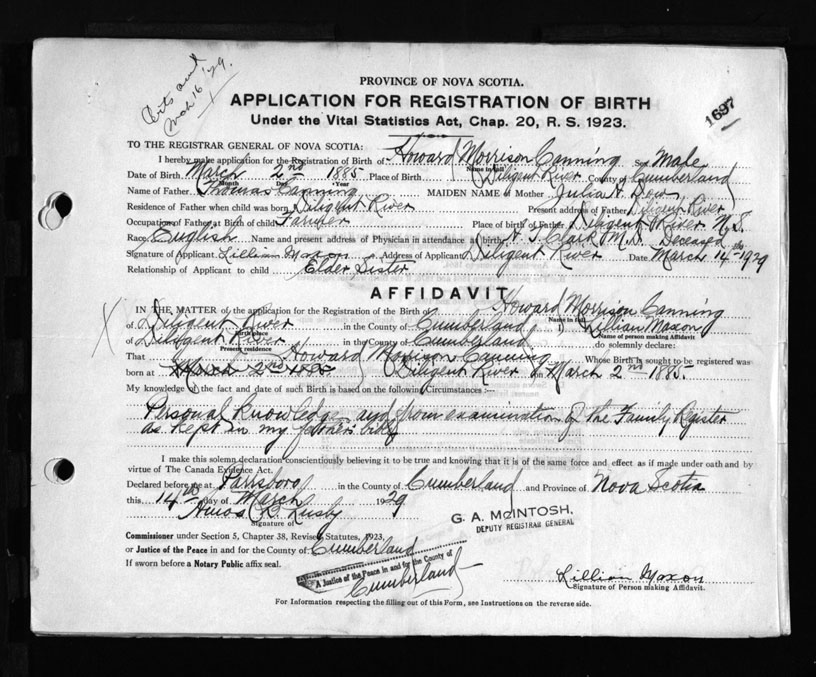 Mch 16 '29.
1697
PROVINCE OF NOVA SCOTIA.
APPLICATION FOR REGISTRATION OF BIRTH
Under the Vital Statistics Act, Chap. 20, R. S. 1923.
TO THE REGISTRAR GENERAL OF NOVA SCOTIA:
I hereby make application for the Registration of Birth of Howard Morrison Canning Sex Male
Name in full
Date of Birth March 2nd 1885 Place of Birth Diligent River County of Cumberland
Month Day Year
Name of Father Thomas Canning MAIDEN NAME of Mother Julia A. Dow
Residence of Father when child was born Diligent River Present address of Father Diligent River
Occupation of Father at Birth of child Farmer Place of birth of Father Diligent River N.S.
Race English Name and present address of Physician in attendance at birth Clark M.D. Deceased
Signature of Applicant Lillian Maxon Address of Applicant Diligent River Date March 14-1929
Relationship of Applicant to child Elder Sister
AFFIDAVIT
IN THE MATTER of application of the Registration of the Birth of Howard Morrison Canning
Name in full
of Diligent River in the County of Cumberland I, Lillian Maxon
Birth place Name of person making Affidavit
of Diligent River in the County of Cumberland do solemnly declare:
Present residence
That Howard Morrison Canning Whose Birth is sought to be registered was
born at March 2nd 1885 Diligent River on March 2nd 1885.
My knowledge of the fact and date of such Birth is based on the following Circumstances:—
Personal knowledge and from examination of the Family Register
as kept in my father's bible
I make this solemn declaration conscientiously believing it to be true and knowing that it is of the same force and effect as if made under oath and by
virtue of The Canada Evidence Act.
Declared before me at Parrsboro in the County of Cumberland and Province of Nova Scotia
this 14th day of March 1929
Amos
Signature of
G. A. McINTOSH,
DEPUTY REGISTRAR GENERAL
Commissioner under Section 5, Chapter 38, Revised Statutes, 1923.
or Justice of the Peace in and for the County of Cumberland
If sworn before a Notary Public affix seal.
A Justice of the Peace in and for the County of
Cumberland
Lillian Maxon
Signature of Person making Affidavit.
For Information respecting the filling out of this Form, see Instructions on the reverse side.